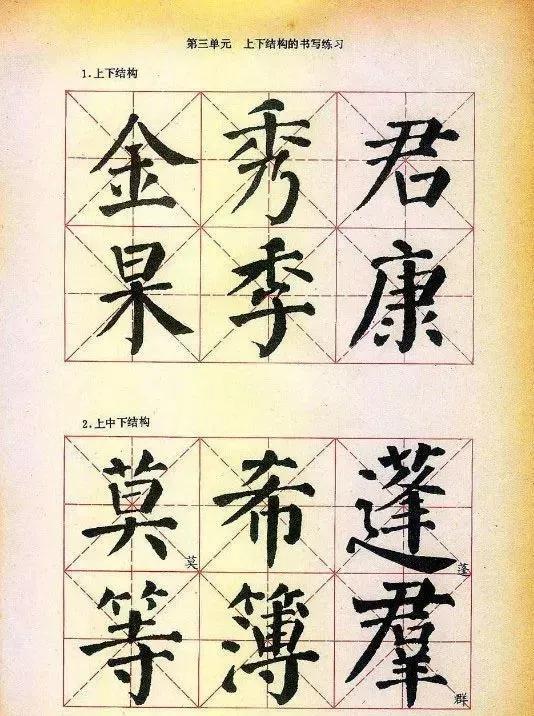 第三单元 上下结构的书写练习
1.上下结构
金秀君
杲季康
2.上中下结构
莫希蓬
莫 蓬
等簿羣
群